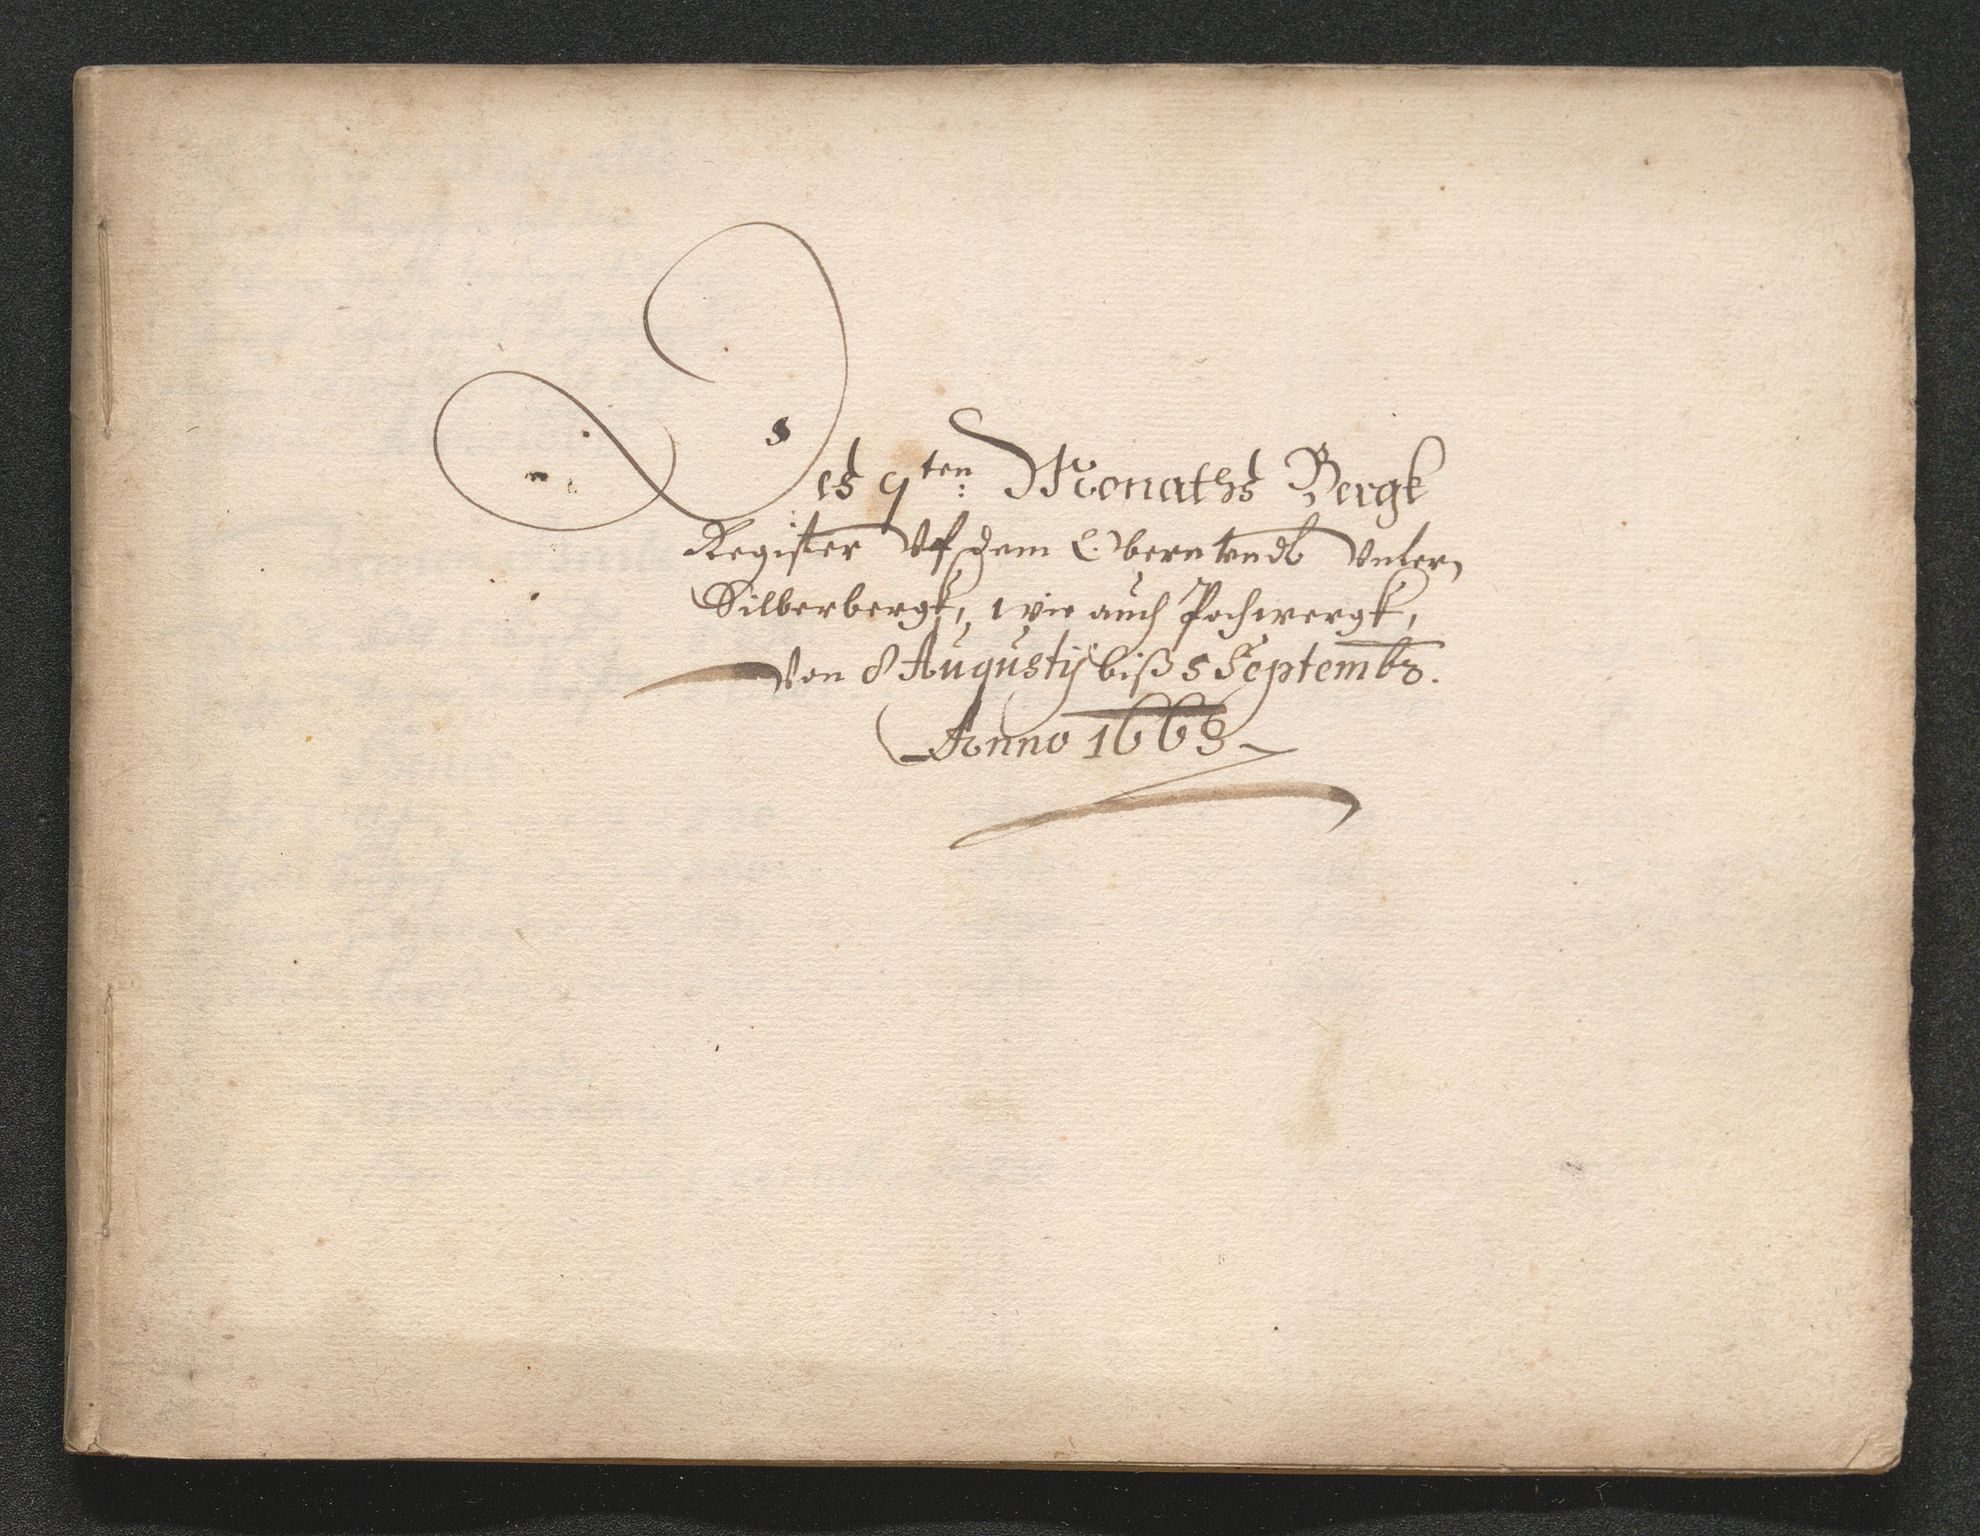 Deß 9ten: Monaths Bergk
Register Vf dem Obern vndt Vntern
Silberbergk, wie auch Pochwergk,
Von 8 Augustij biß 5 Septembr.
Anno 1668